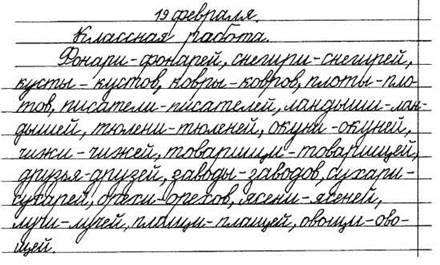 19 февраля.
Классная работа.
Фонари-фонарей, снегири-снегирей,
кусты-кустов, ковры-ковров, плоты-пло-
тов, писатели-писателей, ландыши-лан-
дышей, тюлени-тюленей, окуни-окуней,
чижи-чижей, товарищи-товарищей,
друзья-друзей, заводы-заводов, сухари-
сухарей, орехи-орехов, ясени-ясеней,
лучи-лучей, плащи-плащей, овощи-ово-
щей.